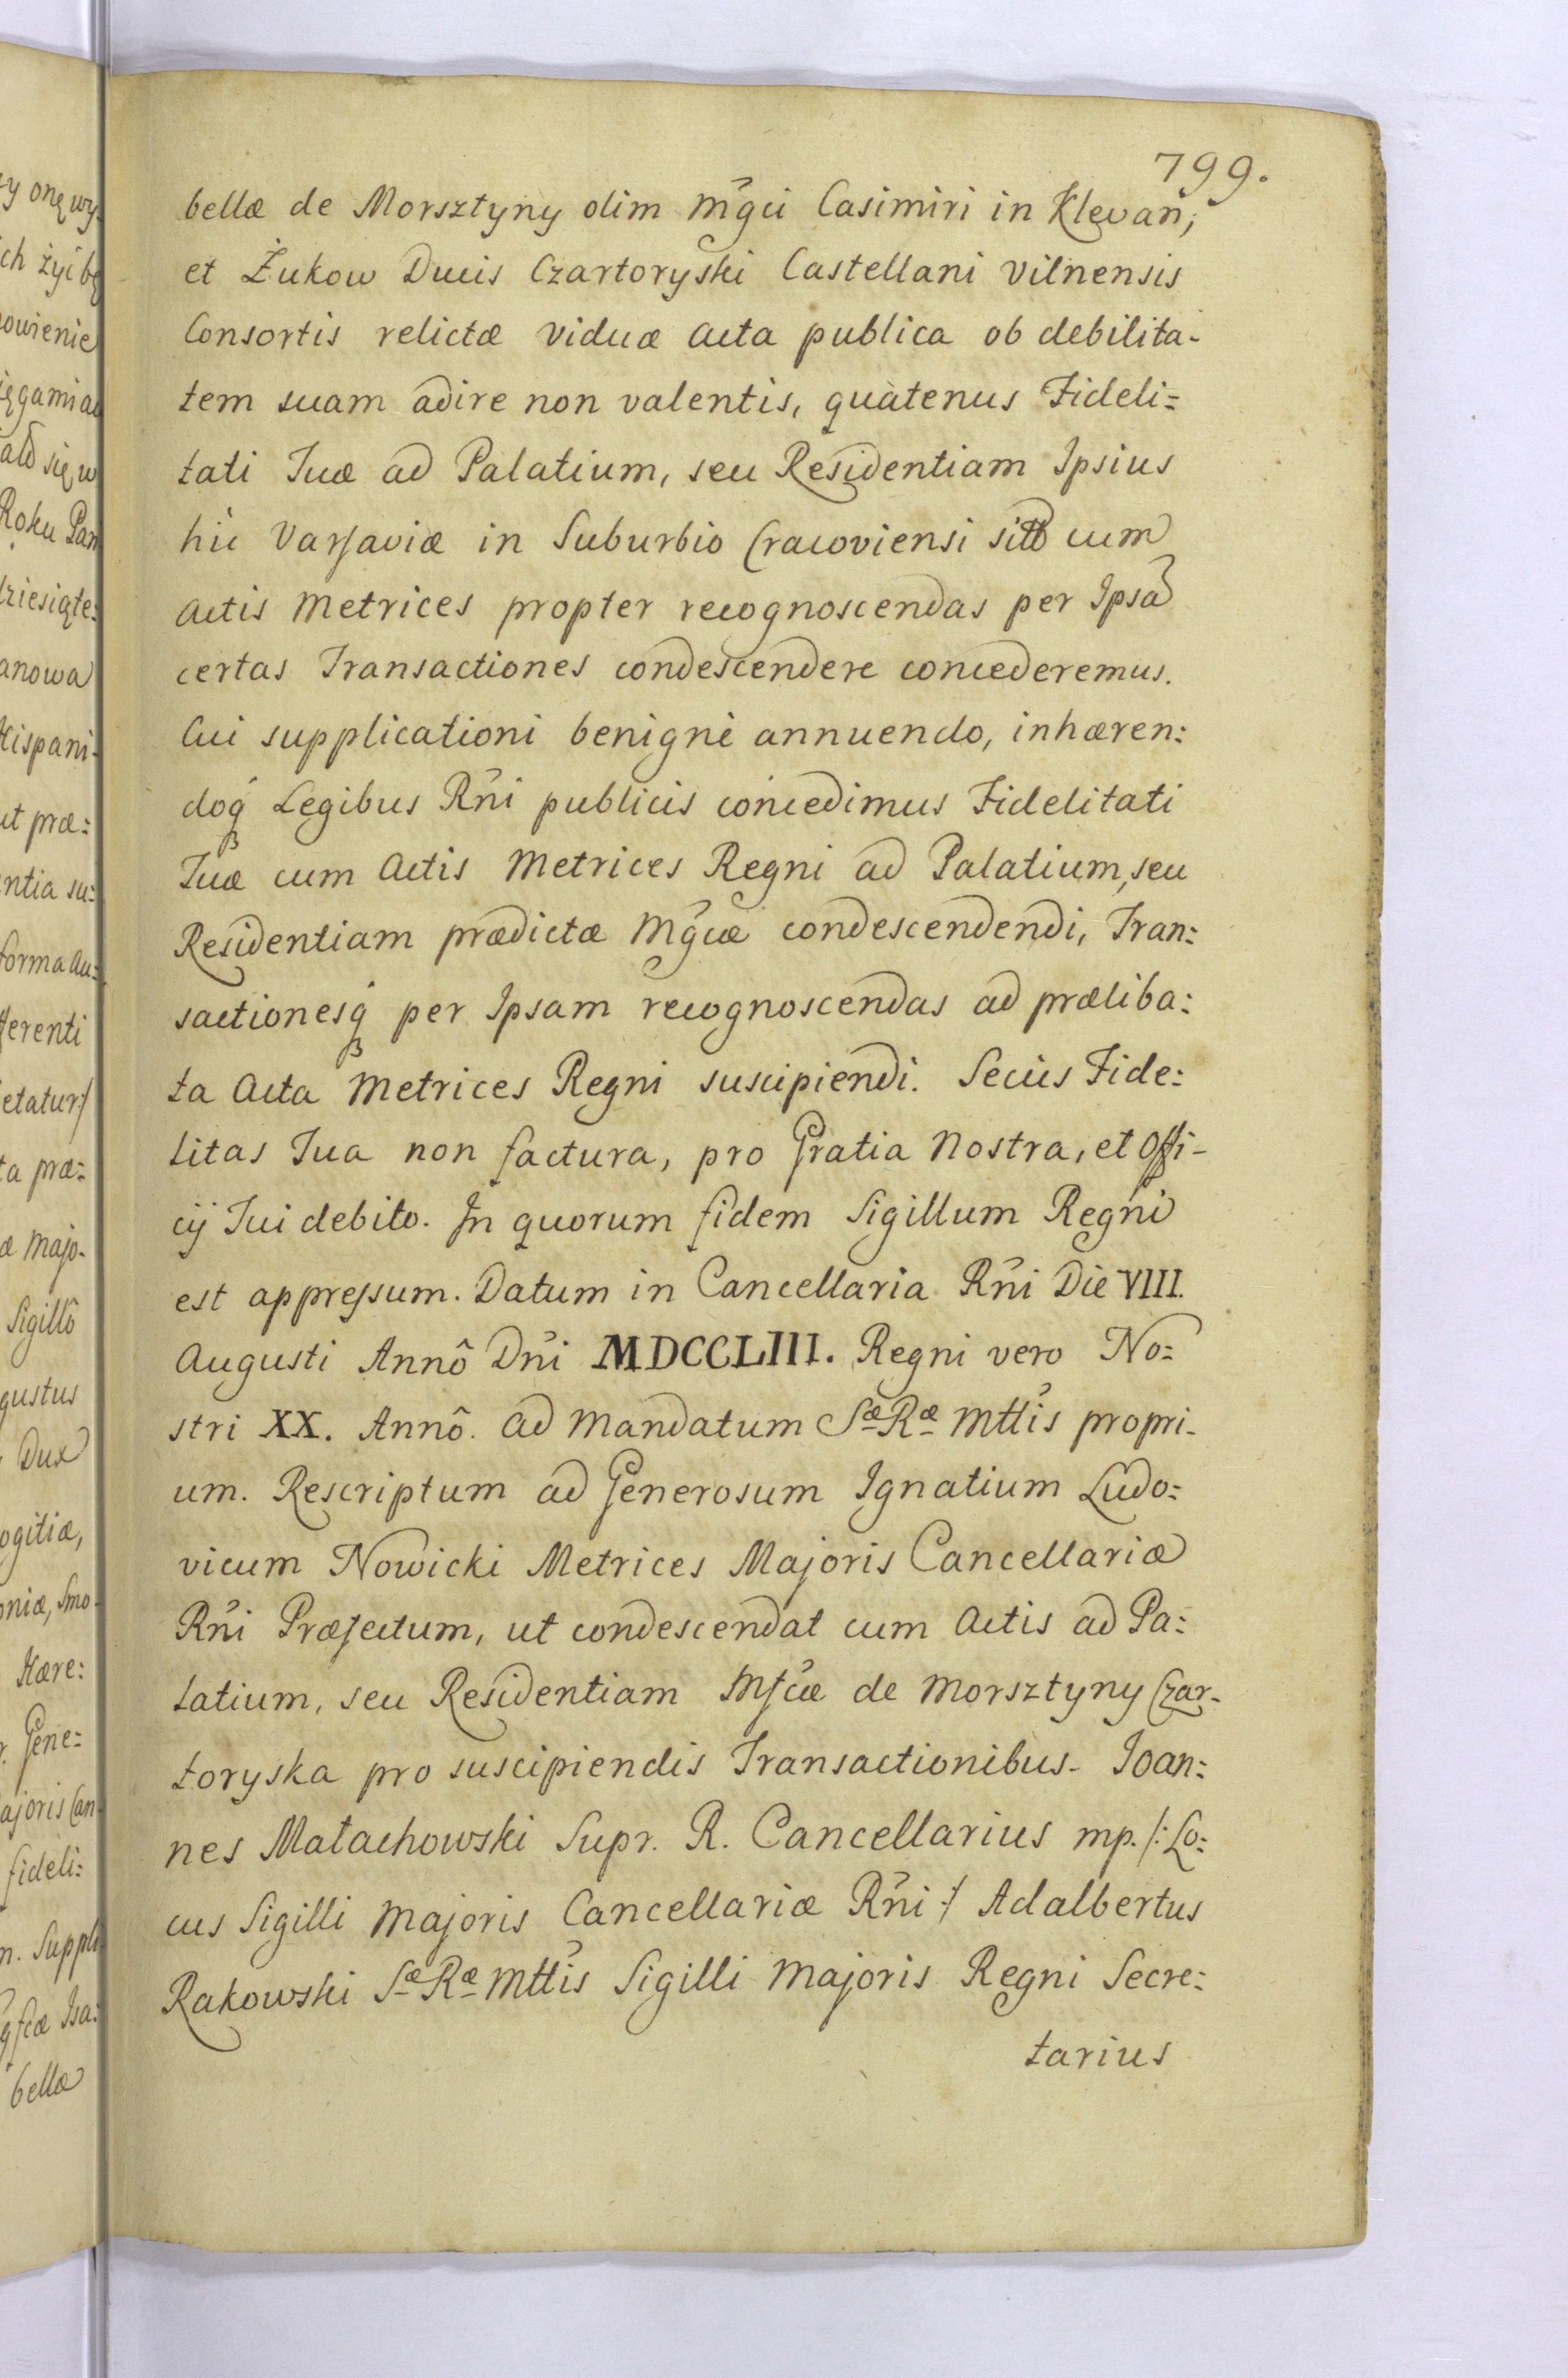 799.
bellæ de Morsztyny olim Mgci Casimiri in Klevań,
et Żukow Ducis Czartoryski Castellani Vilnensis
Consortis relictæ viduæ acta publica ob debilita-
tem suam adire non valentis, quàtenus Fideli=
tati Tuæ ad Palatium, seu Residentiam Ipsius
hìc Varsaviæ in Suburbio Cracoviensi sito cum
actis Metrices propter recognoscendas per Ipsã
certas Transactiones condescendere concederemus.
Cui supplicationi benignè annuendo, inhæren:
doq́ Legibus Rñi publicis concedimus Fidelitati
Tuæ cum Actis Metrices Regni ad Palatium, seu
Residentiam prædictæ Mgcæ condescendendi, Tran:
sactionesq́ per Ipsam recognoscendas ad præliba:
ta Acta Metrices Regni suscipiendi. Seciùs Fide:
litas Tua non factura, pro Gratia Nostra, et Offi-
cÿ Tui debito. In quorum fidem Sigillum Regni
est appressum. Datum in Cancellaria Rñi Die VIII.
Augusti Annô Dñi MDCCLIII. Regni vero No=
stri XX. Annô. Ad Mandatum Sæ Ræ Mttis propri-
um. Rescriptum ad Generosum Ignatium Ludo:
vicum Nowicki Metrices Majoris Cancellariæ
Rñi Præfectum, ut condescendat cum Actis ad Pa:
latium, seu Residentiam Mfcæ de Morsztyny Czar-
toryska pro suscipiendis Transactionibus. Ioan:
nes Małachowski Supr. R. Cancellarius mp. /: Lo:
cus Sigilli Majoris Cancellariæ Rñi :/ Adalbertus
Rakowski Sæ Ræ Mttis Sigilli Majoris Regni Secre:
tarius